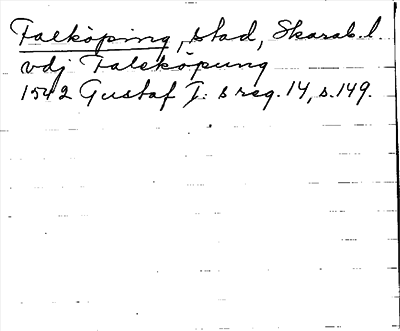 Falköping, stad, Skarab.l.
vdj Falsköpung
1542 Gustaf I:s reg. 14, s. 149.